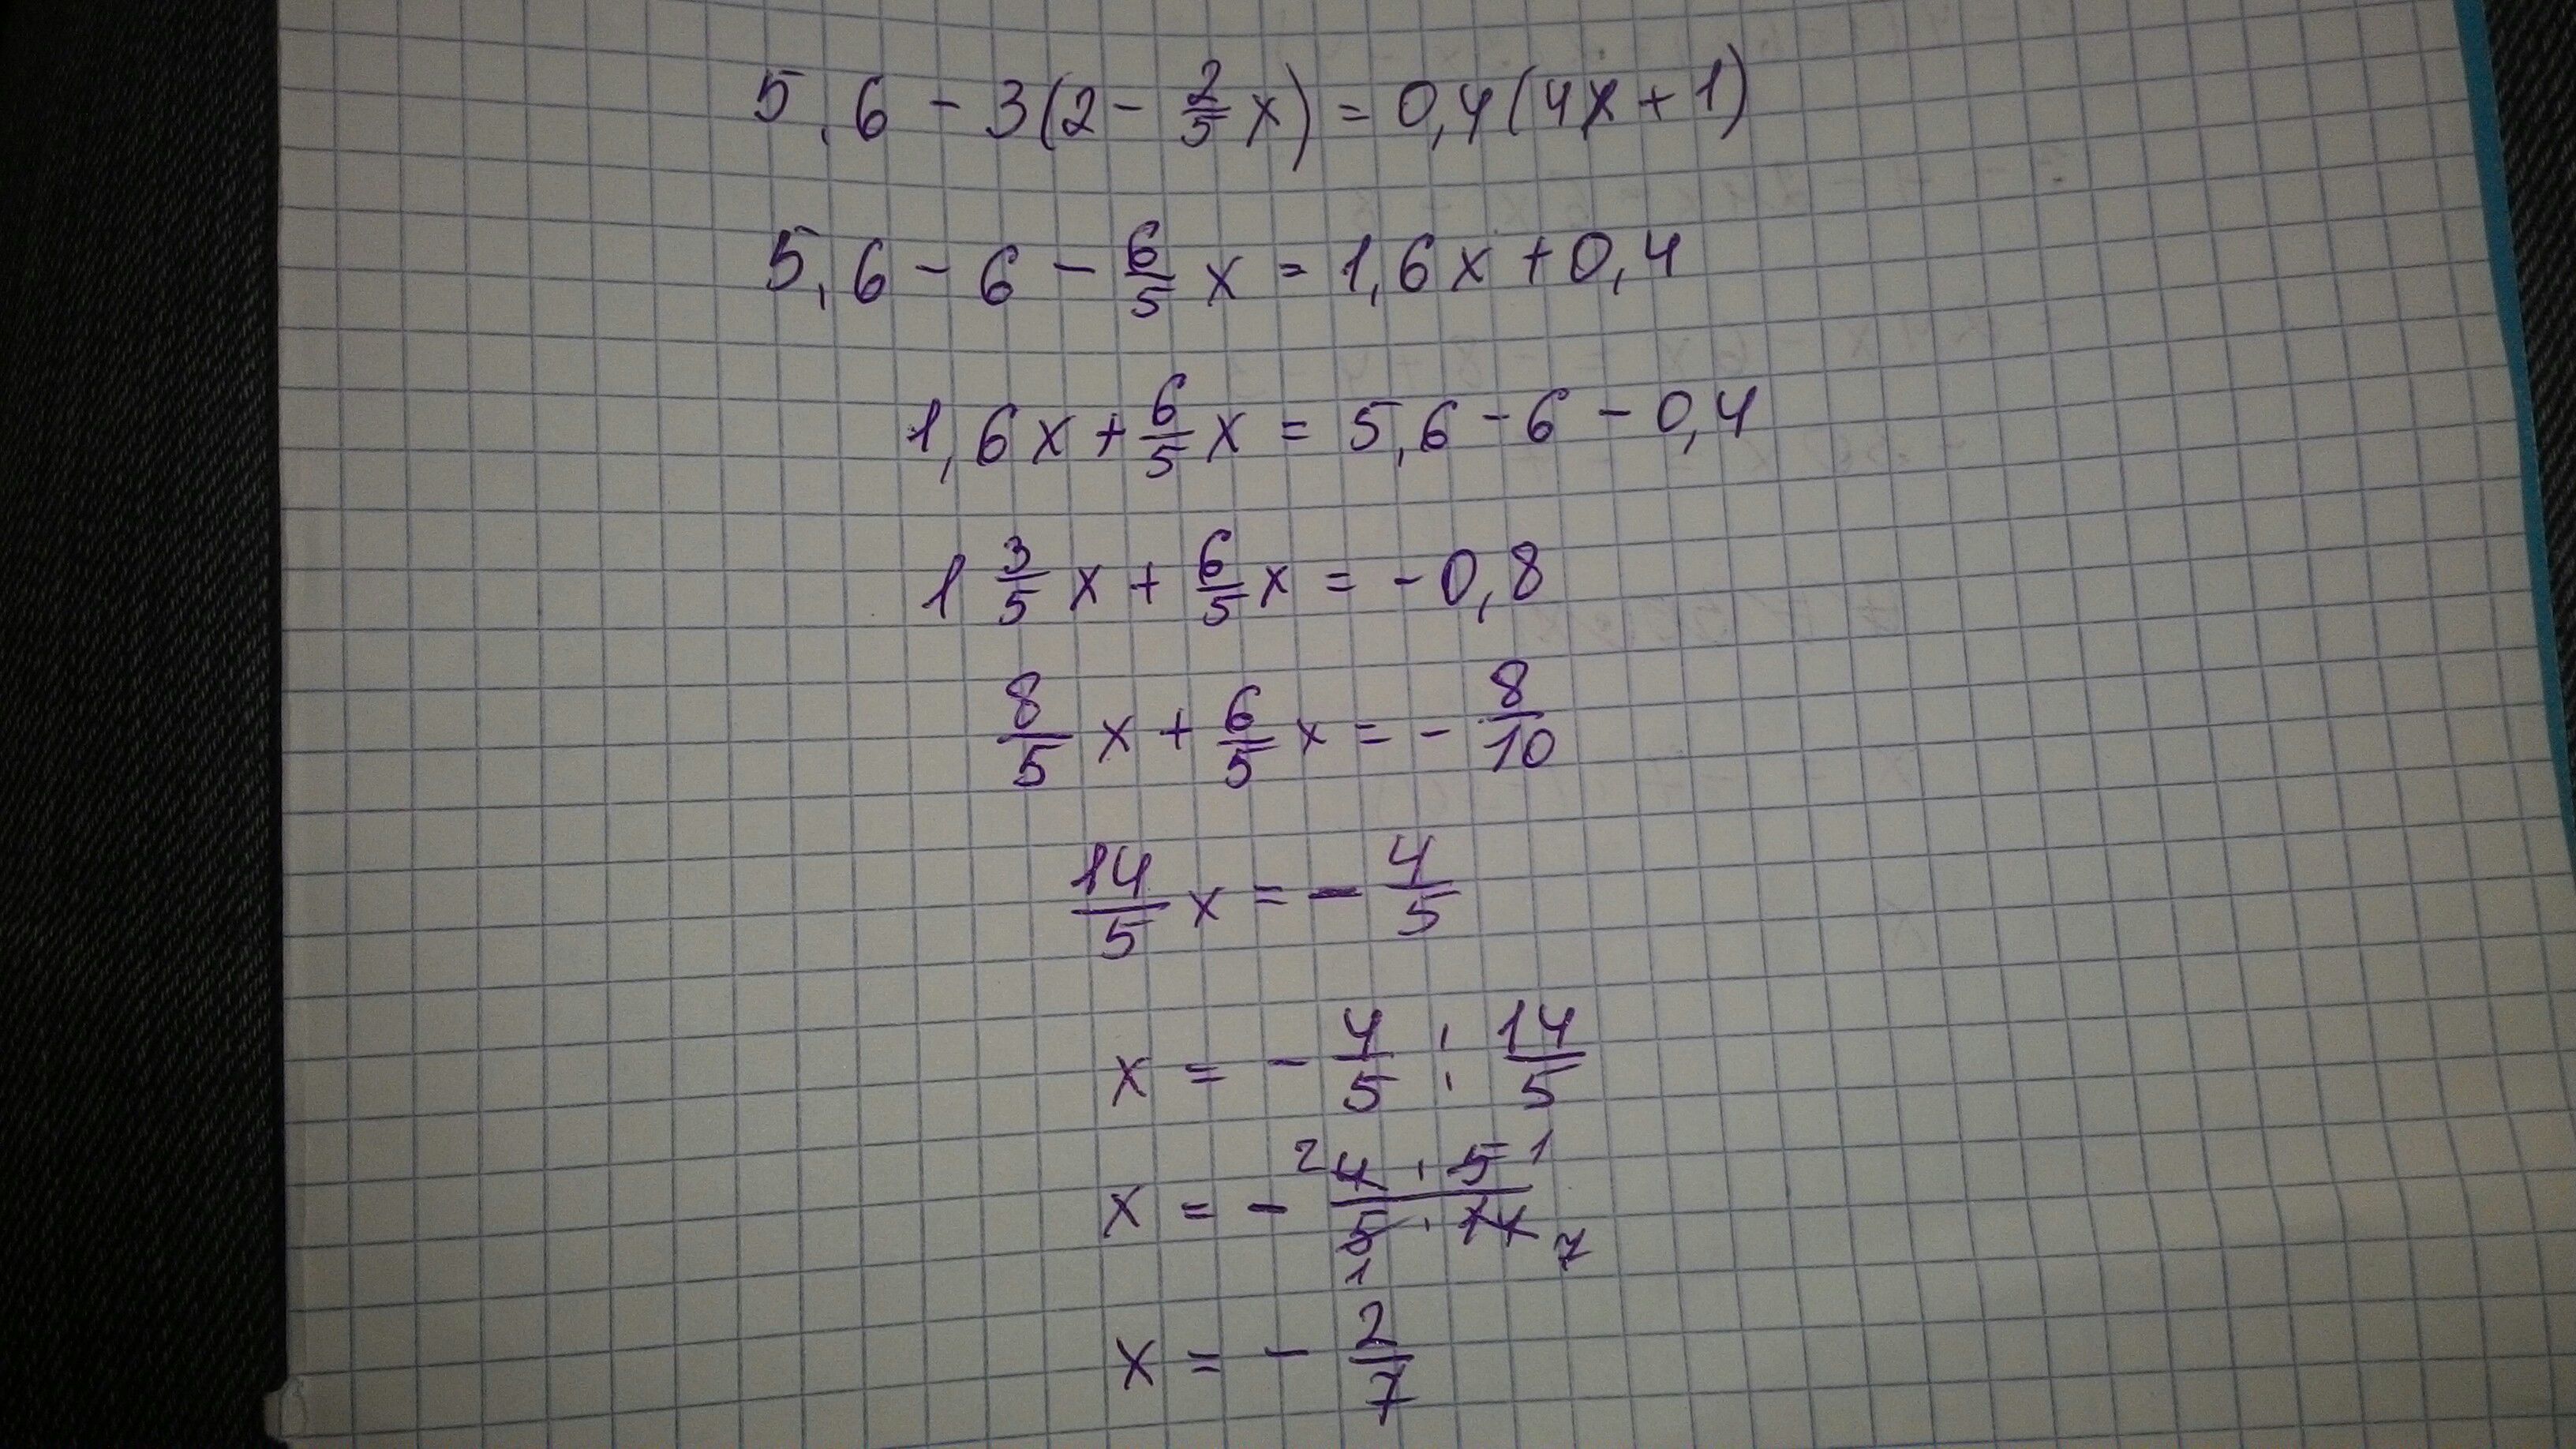 5,6 - 3(2 - 2/5 x) = 0,4(4x + 1)
5,6 - 6 - 6/5 x = 1,6x + 0,4
1,6x + 6/5 x = 5,6 - 6 - 0,4
1 3/5 x + 6/5 x = -0,8
8/5 x + 6/5 x = - 8/10
14/5 x = - 4/5
x = - 4/5 : 14/5
x = - 2 4 · 5 1 / 5 1 · 14 7
x = - 2/7